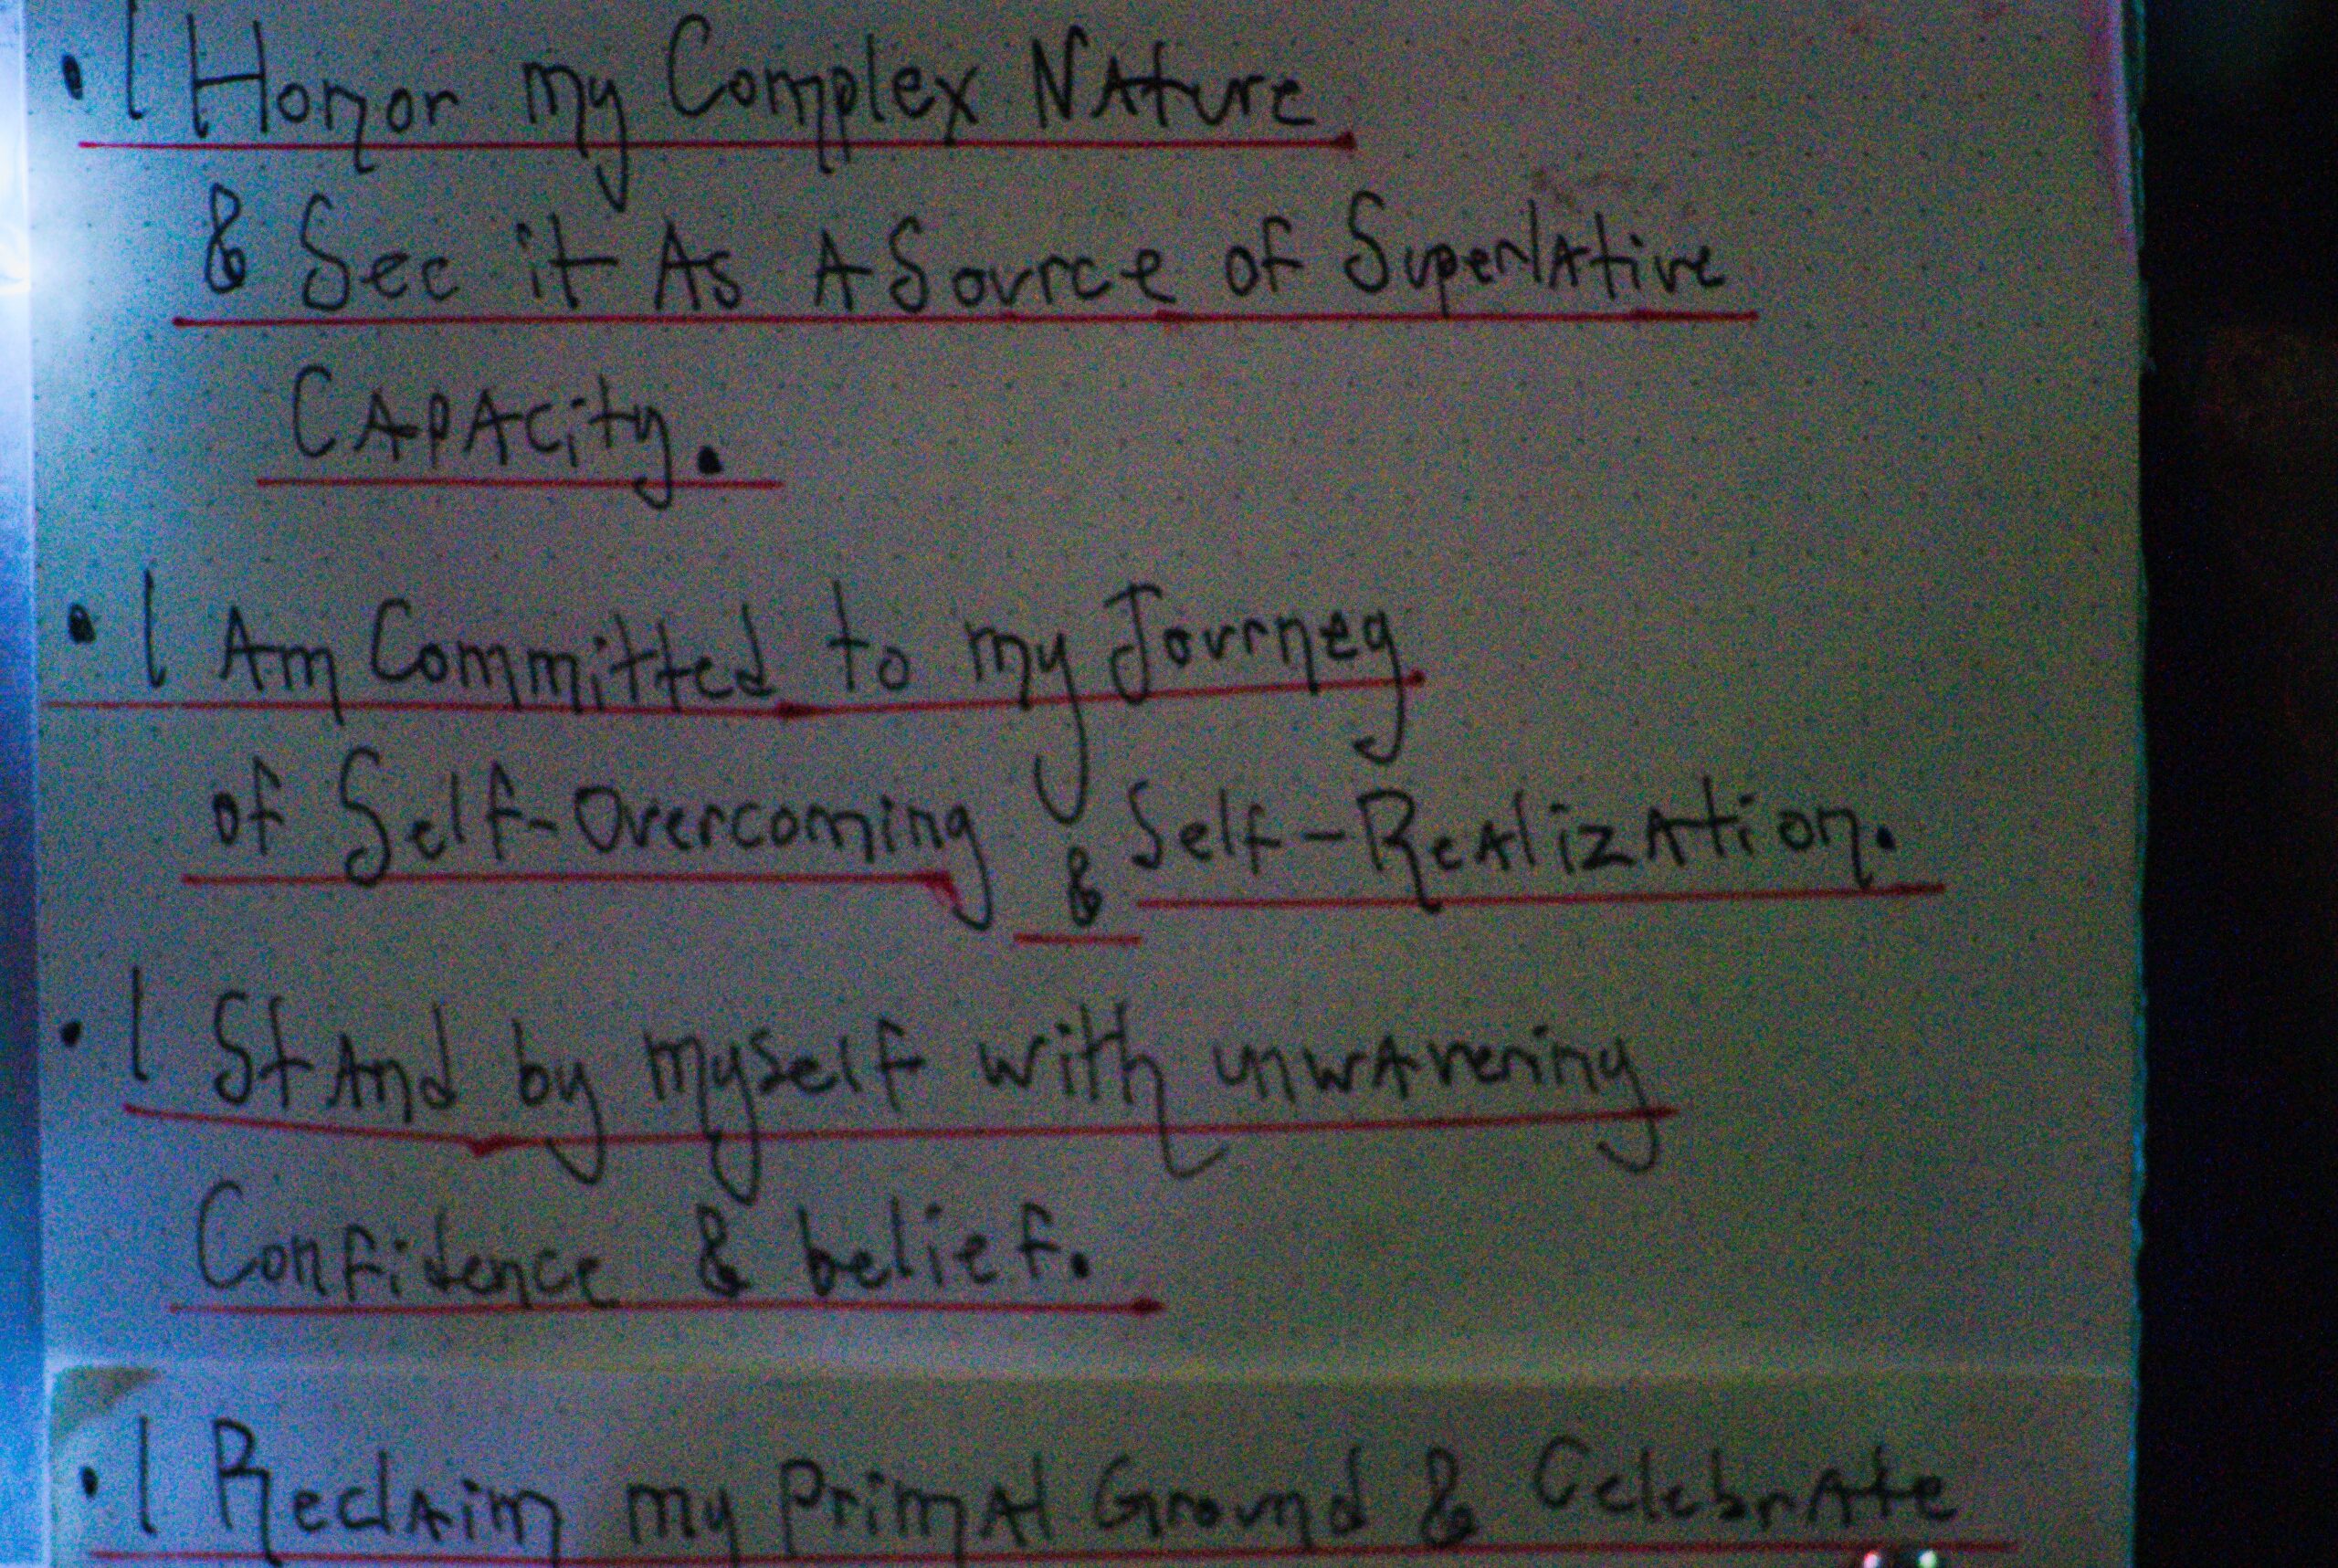 • I Honor my Complex NAture
& See it As A Source of SuperlAtive
CApAcity.
• I Am Committed to my Journey
of Self-Overcoming & Self-ReAlizAtion.
• I StAnd by myself with unwAvering
Confidence & belief.
• I ReclAim my PrimAl Ground & CelebrAte